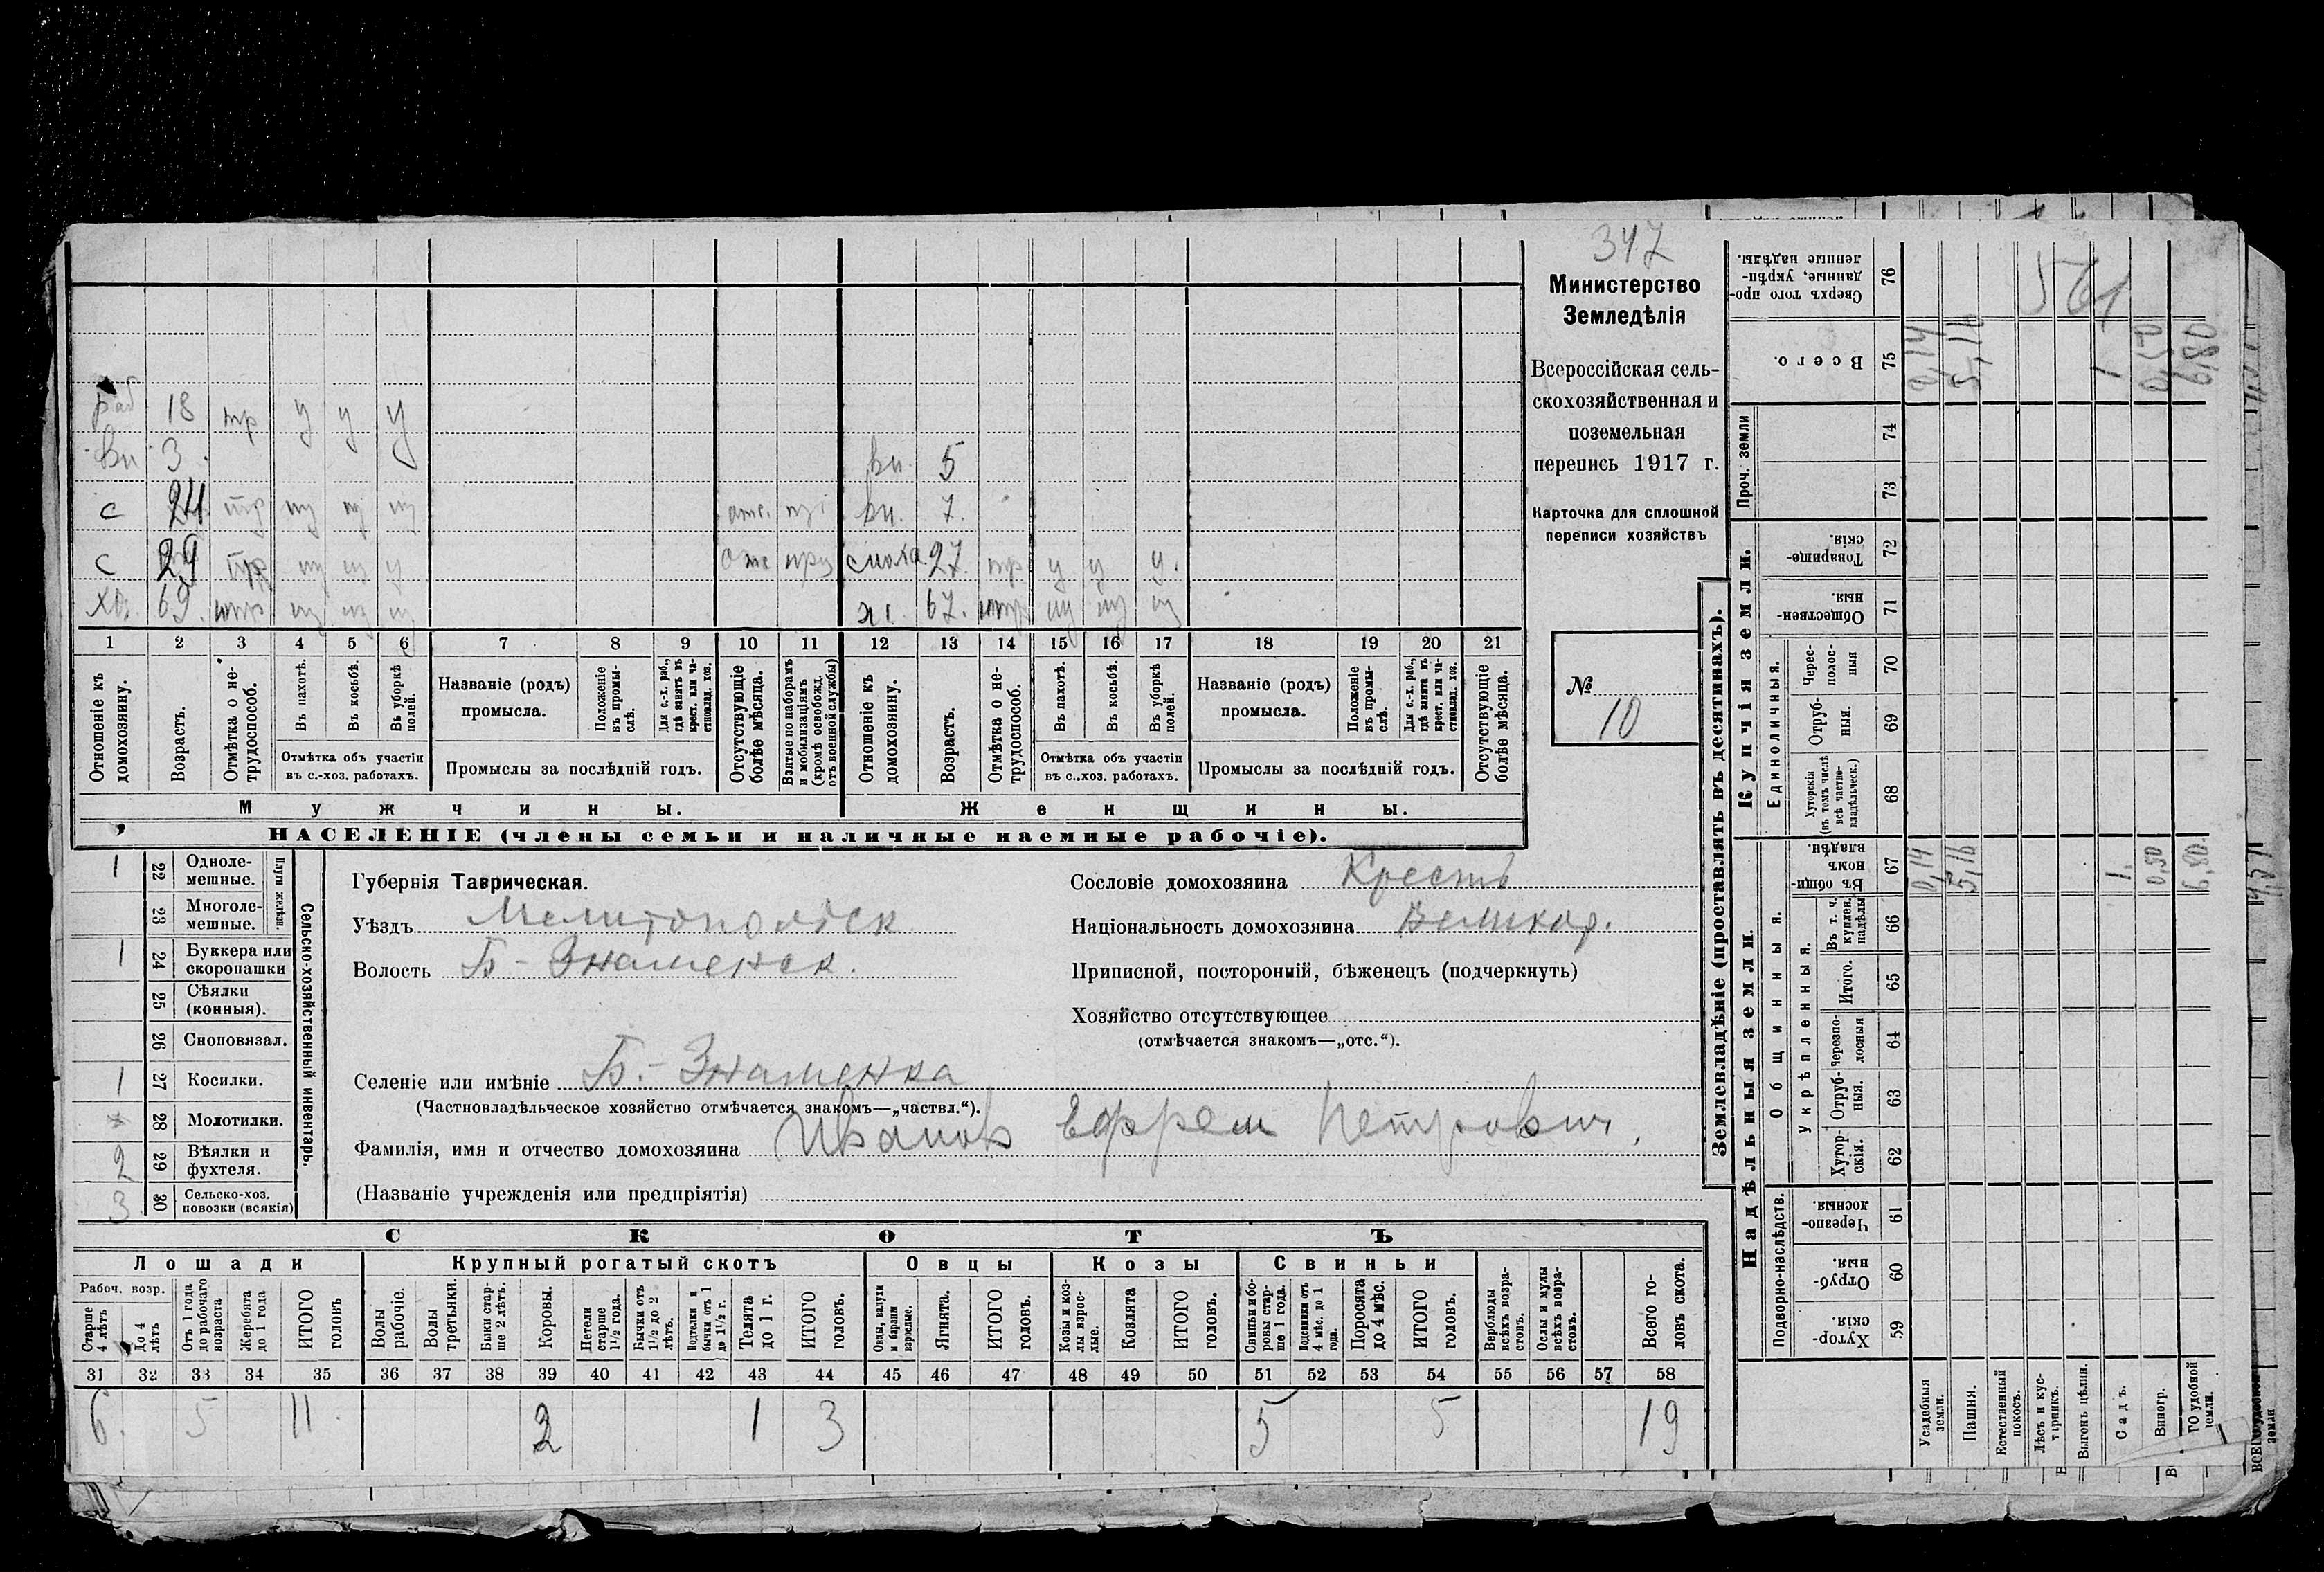 347
Министерство
Земледѣлія
Всероссійская сель-
скохозяйственная и
поземельная
перепись 1917 г.
Карточка для сплошной
переписи хозяйствъ
№
10
раб 18 тр у у у
вн 3 вн. 5
с 24 тр отс. вн. 7.
с 29 тр у отс сноха 27. тр у у у.
хоз. 69. х. 67.
1 2 3 4 5 6 7 8 9 10 11 12 13 14 15 16 17 18 19 20 21
Отношеніе къ домохозяину.
Возрастъ.
Отмѣтка о не-трудоспособ.
Въ пахотѣ.
Въ косьбѣ.
Въ уборкѣ полей.
Отмѣтка объ участіи
въ с.-хоз. работахъ.
Названіе (родъ)
промысла.
Положеніе въ промы-слѣ.
Для с.-х. раб., гдѣ занятъ въ крест. или ча-стновлад. хоз.
Промыслы за послѣдній годъ.
Отсутствующіе болѣе мѣсяца.
Взятые по наборамъ и мобилизаціямъ (кромѣ освобожд. отъ военной службы)
Отношеніе къ домохозяину.
Возрастъ.
Отмѣтка о не-трудоспособ.
Въ пахотѣ.
Въ косьбѣ.
Въ уборкѣ полей.
Отмѣтка объ участіи
въ с..хоз. работахъ.
Названіе (родъ)
промысла.
Положеніе въ промы-слѣ.
Для с.-х. раб., гдѣ занята въ крест. или ча-стновлад. хоз.
Промыслы за послѣдній годъ.
Отсутствующіе болѣе мѣсяца.
Мужчины. Женщины.
НАСЕЛЕНІЕ (члены семьи и наличные наемные рабочіе).
1 22 Одноле-мешные.
23 Многоле-мешные.
Плуги желѣзн.
1 24 Буккера или скоропашки
25 Сѣялки (конныя).
26 Сноповязал.
1 27 Косилки.
28 Молотилки.
2 29 Вѣялки и фухтеля.
3 30 Сельско-хоз. повозки (всякія)
Сельско-хозяйственный инвентарь.
Губернія Таврическая.
Уѣздъ Мелитопольск
Волость Б-Знаменск.
Селеніе или имѣніе Б.-Знаменка
(Частновладѣльческое хозяйство отмѣчается знакомъ—„частвл.“).
Фамилія, имя и отчество домохозяина Иванов Ефрем Петрович.
(Названіе учрежденія или предпріятія)
Сословіе домохозяина Кресть
Національность домохозяина Великор.
Приписной, посторонній, бѣженецъ (подчеркнуть)
Хозяйство отсутствующее
(отмѣчается знакомъ—„отс.“).
СКОТЪ
Лошади Крупный рогатый скотъ Овцы Козы Свиньи
Рабоч. возр.
Старше 4 лѣтъ
До 4 лѣтъ
Отъ 1 года до рабочаго возраста
Жеребята до 1 года
ИТОГО головъ
Волы рабочіе.
Волы третьяки.
Быки стар-ше 2 лѣтъ.
Коровы.
Нетели старше 1½ года.
Бычки отъ 1½ до 2 лѣтъ.
Подтелки и бычки отъ 1 до 1½ г.
Телята до 1 г.
ИТОГО головъ.
Овцы, валухи и бараны взрослые.
Ягнята.
ИТОГО головъ.
Козы и коз-лы взрос-лые.
Козлята
ИТОГО головъ.
Свиньи и бо-ровы стар-ше 1 года.
Подсвинки отъ 4 мѣс. до 1 года.
Поросята до 4 мѣс.
ИТОГО головъ.
Верблюды всѣхъ возра-стовъ.
Ослы и мулы всѣхъ возра-стовъ.
Всего го-ловъ скота.
31 32 33 34 35 36 37 38 39 40 41 42 43 44 45 46 47 48 49 50 51 52 53 54 55 56 57 58
6. 5 11 2 1 3 5 5 19
Землевладѣніе (проставлять въ десятинахъ).
Надѣльныя земли. Купчія земли. Проч. земли
Подворно-наслѣдств.
Общинныя.
Укрѣпленныя.
Единоличныя.
Хутор-скія. 59
Отруб-ныя. 60
Черезпо-лосныя. 61
Хутор-скія. 62
Отруб-ныя. 63
Черезпо-лосныя 64
Итого. 65
Въ т. ч. куплен. надѣлы 66
Въ общин-номъ владѣн. 67
Хуторскія (въ томъ числѣ всѣ частно-владѣльческ.) 68
Отруб-ныя. 69
Черес-полос-ныя 70
Обществен-ныя. 71
Товарище-скія. 72
73
74
Всего. 75
Сверхъ того про-данные, укрѣп-ленные надѣлы. 76
Усадебныя земли. 0,14 0,14
Пашня. 5,16 5,16
Естественный покосъ.
Лѣсъ и кус-тарникъ.
Выгонъ цѣлин.
Садъ. 1. 1
Виногр. 0,50 0,50
ГО удобной земли. 6,80. 6,80
561